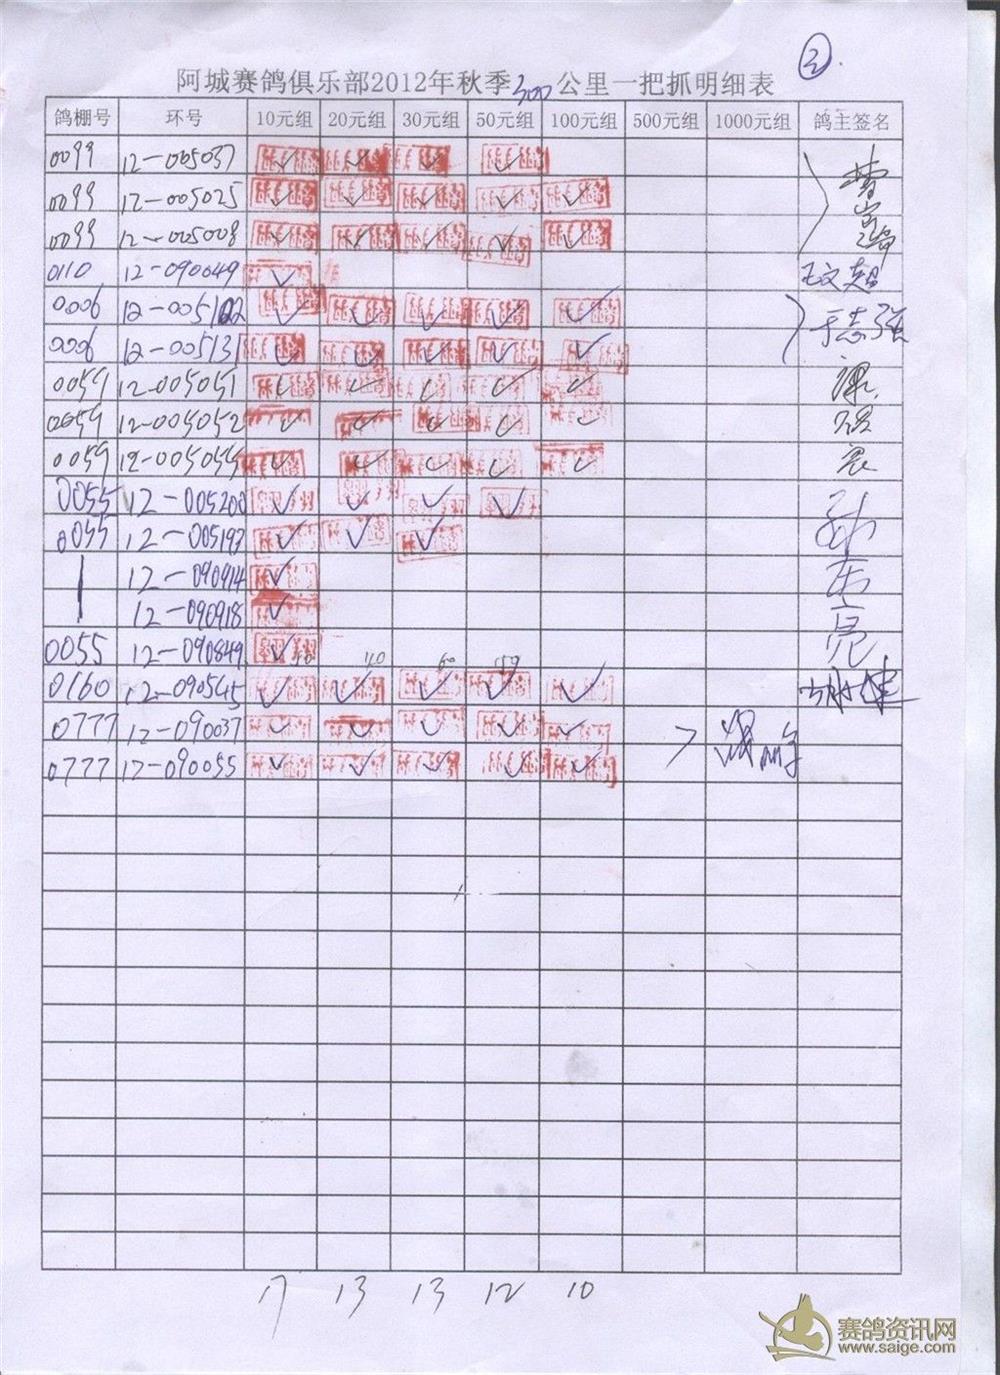 2
阿城赛鸽俱乐部2012年秋季300公里一把抓明细表
鸽棚号 环号 10元组 20元组 30元组 50元组 100元组 500元组 1000元组 鸽主签名
0099 12-005037 ✓ ✓ ✓ ✓
0099 12-005025 ✓ ✓ ✓ ✓ ✓
0099 12-005008 ✓ ✓ ✓ ✓ ✓
0110 12-090049 ✓ 王文超
0006 12-005102 ✓ ✓ ✓ ✓ ✓ 于志强
0006 12-005131 ✓ ✓ ✓ ✓ ✓
0059 12-005051 ✓ ✓ ✓ ✓ ✓
0059 12-005052 ✓ ✓ ✓ ✓ ✓
0059 12-005055 ✓ ✓ ✓ ✓ ✓
0055 12-005200 ✓ ✓ ✓ ✓
0055 12-005193 ✓ ✓ ✓
12-090914 ✓
12-090918 ✓
0055 12-090849 ✓
0160 12-090545 ✓ ✓ ✓ ✓ ✓
0777 12-090037 ✓ ✓ ✓ ✓ ✓
0777 12-090055 ✓ ✓ ✓ ✓ ✓
17 13 13 12 10
赛鸽资讯网
www.saige.com